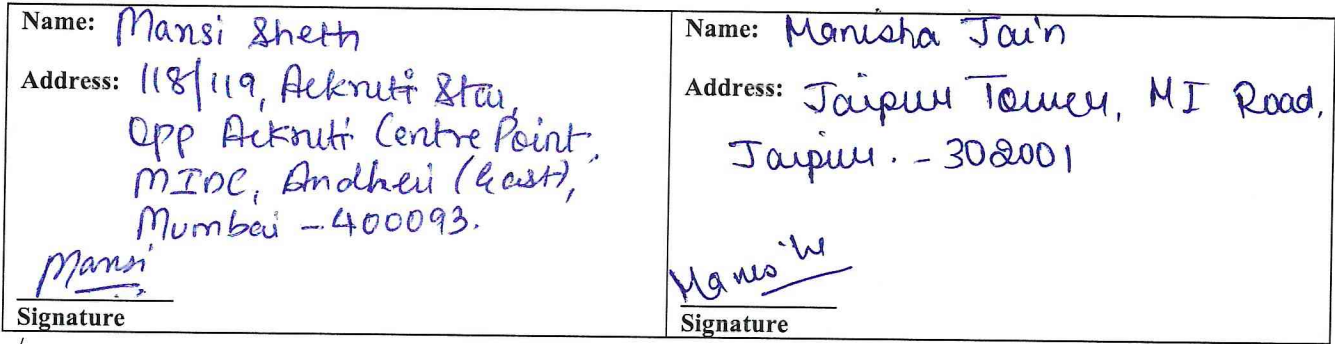 Name: Mansi Sheth
Address: 118/119, Ackruti Star,
Opp Ackruti Centre Point,
MIDC, Andheri (East),
Mumbai - 400093.
Mansi
Signature
Name: Manisha Jain
Address: Jaipur Tower, MI Road,
Jaipur. - 302001
Signature